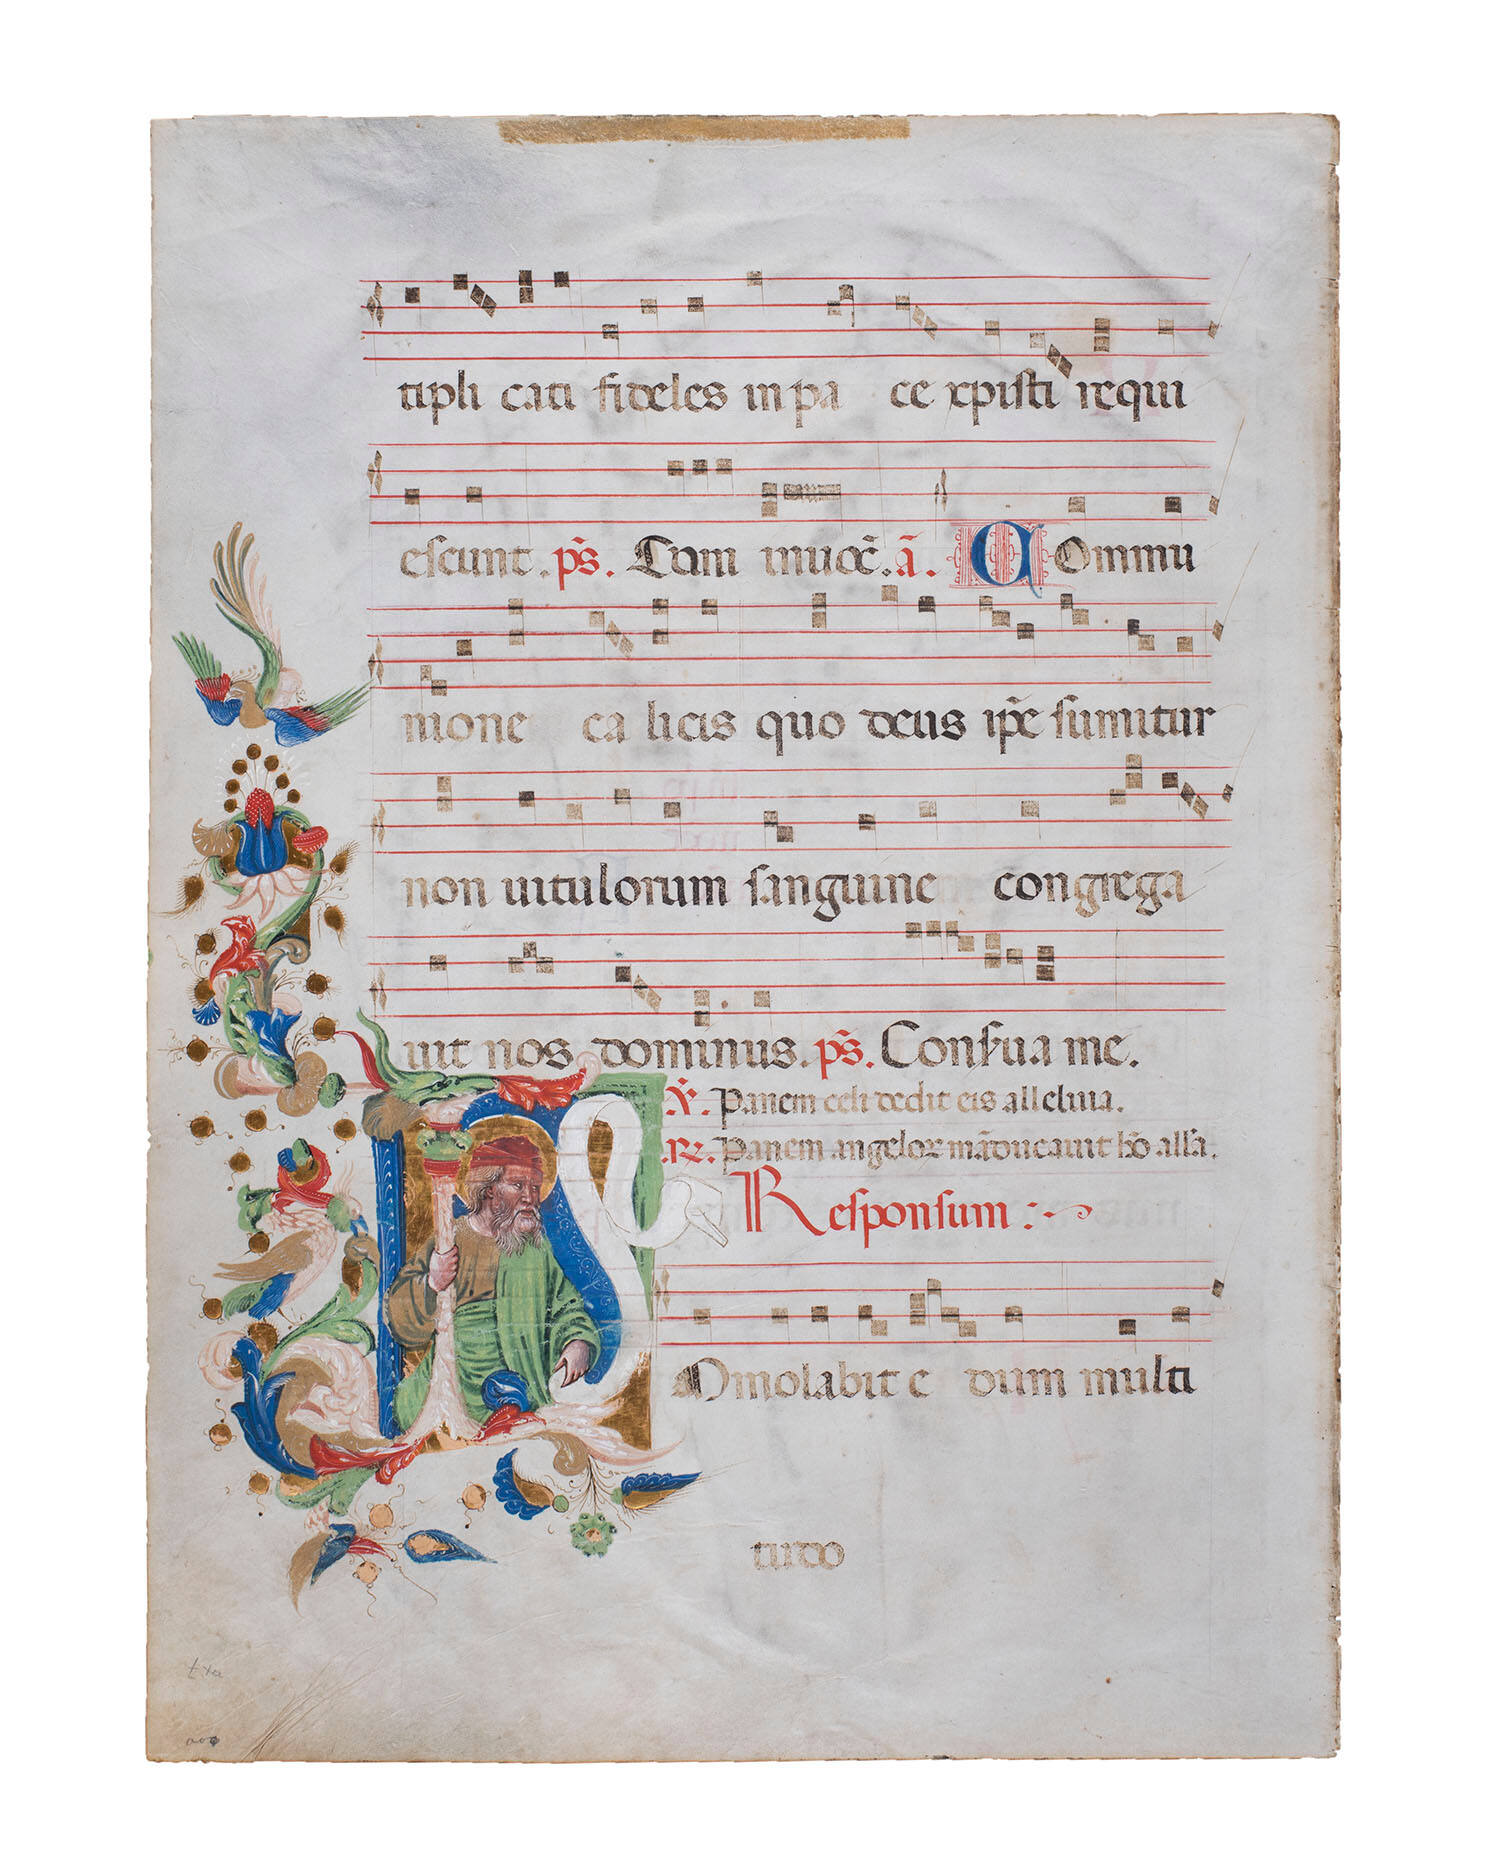 tipli cati fideles in pa ce xpisti requi
escunt. ps̄. Cum inuoc̄. a̅. COmmu
nione ca licis quo deus ip̄e sumitur
non uitulorum sanguine congrega
uit nos dominus. ps̄. Conserua me.
℣. Panem celi dedit eis alleluia.
℟. Panem angeloꝝ māducauit hō all̄a.
Responsum :~
IMmolabit e dum multi
tudo